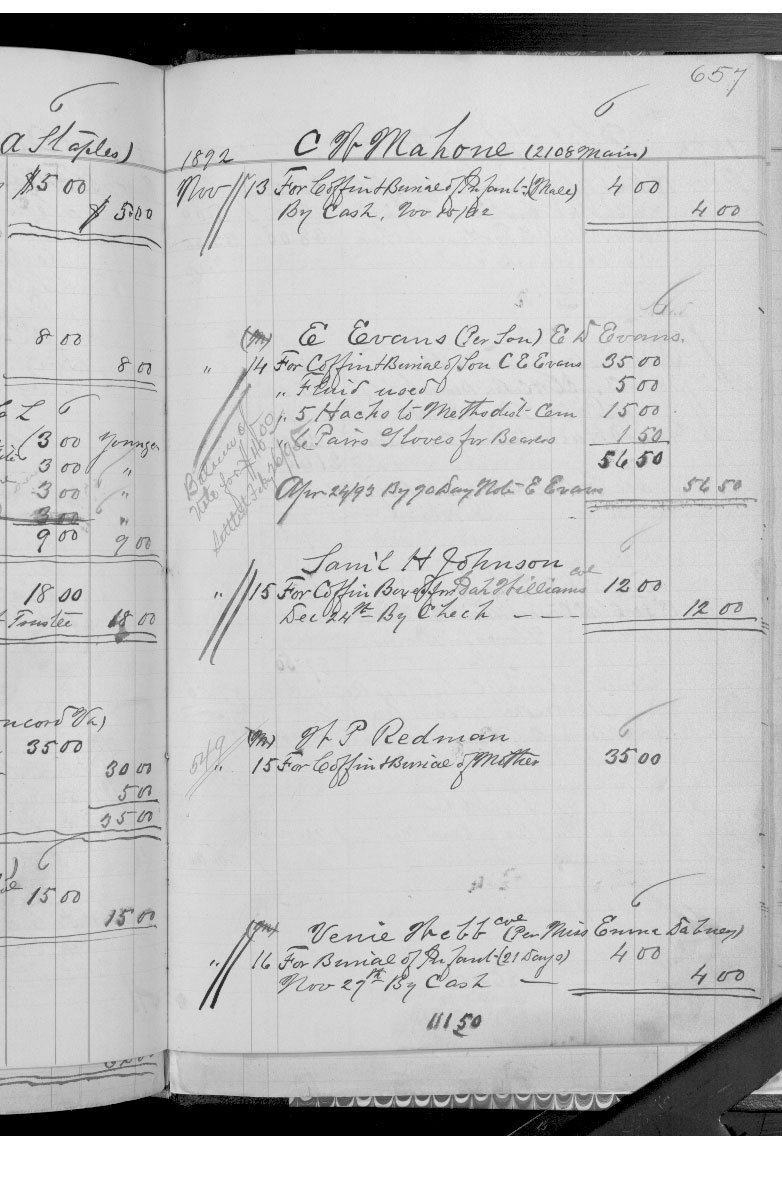 a Staples)
$5 00
$ 5.00
8 00
8 00
3 00 Younger
3 00 "
3 00 "
3 00 "
9 00 9 00
18 00
Trustee 18 00
Concord Va)
35 00
30 00
5 00
35 00
15 00
15 00
657
1892 C W Mahone (2108 Main)
Nov 13 For Coffin & Burial of Infant (Male) 4 00
By Cash, Nov 15/92 4 00
(M) E Evans (Per Son) E D Evans.
" 14 For Coffin & Burial of Son C E Evans 35 00
" Fluid used 5 00
" 5 Hacks to Methodist Cem 15 00
" 6 Pairs Gloves for Bearers 1 50
56 50
Apr 24/93 By 90 Day Note E Evans 56 50
Balance of
Note for
Settled Feby
Sanil H Johnson
" 15 For Coffin Box &c for Williams col 12 00
Dec 24th By Check — — — 12 00
549
(M) W P Redman
" 15 For Coffin & Burial of Mother 35 00
(M) Venie Webb col (Per Miss Emma Dabney)
" 16 For Burial of Infant (21 Days) 4 00
Nov 29th By Cash — 4 00
111 50